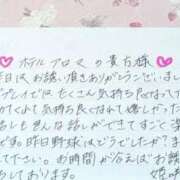 ホテルプロマの貴方様
昨日はお誘い頂きありがとうございまし
プレイではたくさん気持ち良くなって
くれて気持ち良くなれて嬉しかった
話しも色んな話しができてすごく楽
です。昨日野球はどうでしたか?ま
さい。お時間が合えばお願
しております。
姫咲